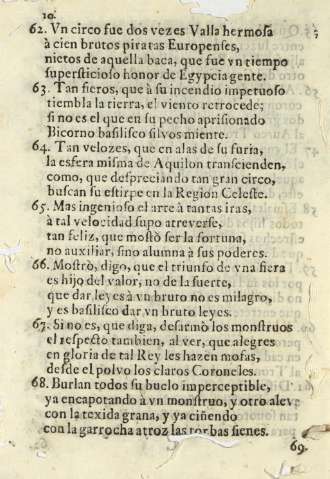 10.
62. Vn circo fue dos vezes Valla hermosa
à cien brutos piratas Europenses,
nietos de aquella baca, que fue vn tiempo
supersticioso honor de Egypcia gente.
63. Tan fieros, que à su incendio impetuoso
tiembla la tierra, el viento retrocede;
si no es el que en su pecho aprisionado
Bicorno basilisco silvos miente.
64. Tan velozes, que en alas de su furia,
la esfera misma de Aquilon transcienden,
como, que despreciando tan gran circo,
buscan su estirpe en la Region Celeste.
65. Mas ingenioso el arte à tantas iras,
à tal velocidad supo atreverse,
tan feliz, que mostò ser la fortuna,
no auxiliar, sino alumna à sus poderes.
66. Mostrò, digo, que el triunfo de vna fiera
es hijo del valor, no de la suerte,
que dar leyes à vn bruto no es milagro,
y es basilisco dar vn bruto leyes.
67. Si no es, que diga, desarmò los monstruos
el respecto tambien, al ver, que alegres
en gloria de tal Rey les hazen mofas,
desde el polvo los claros Coroneles.
68. Burlan todos su buelo imperceptible,
ya encapotando à vn monstruo, y otro aleve
con la texida grana, y ya ciñendo
con la garrocha atroz las torbas sienes.
69.